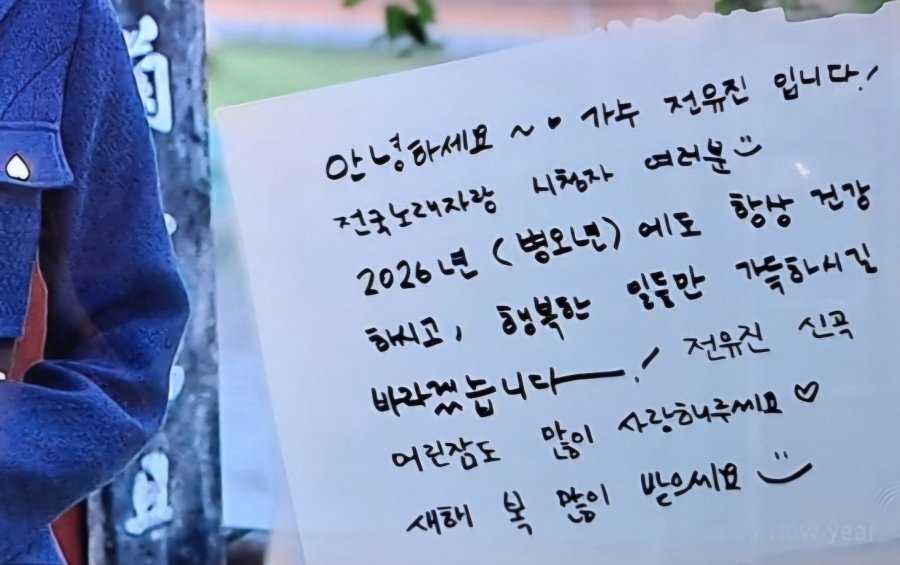 안녕하세요 ~♥ 가수 전유진 입니다!
전국노래자랑 시청자 여러분
2026년 (병오년)에도 항상 건강
하시고, 행복한 일들만 가득하시길
바라겠습니다ㅡ! 전유진 신곡
어린잠도 많이 사랑해주세요♡
새해 복 많이 받으세요
new year